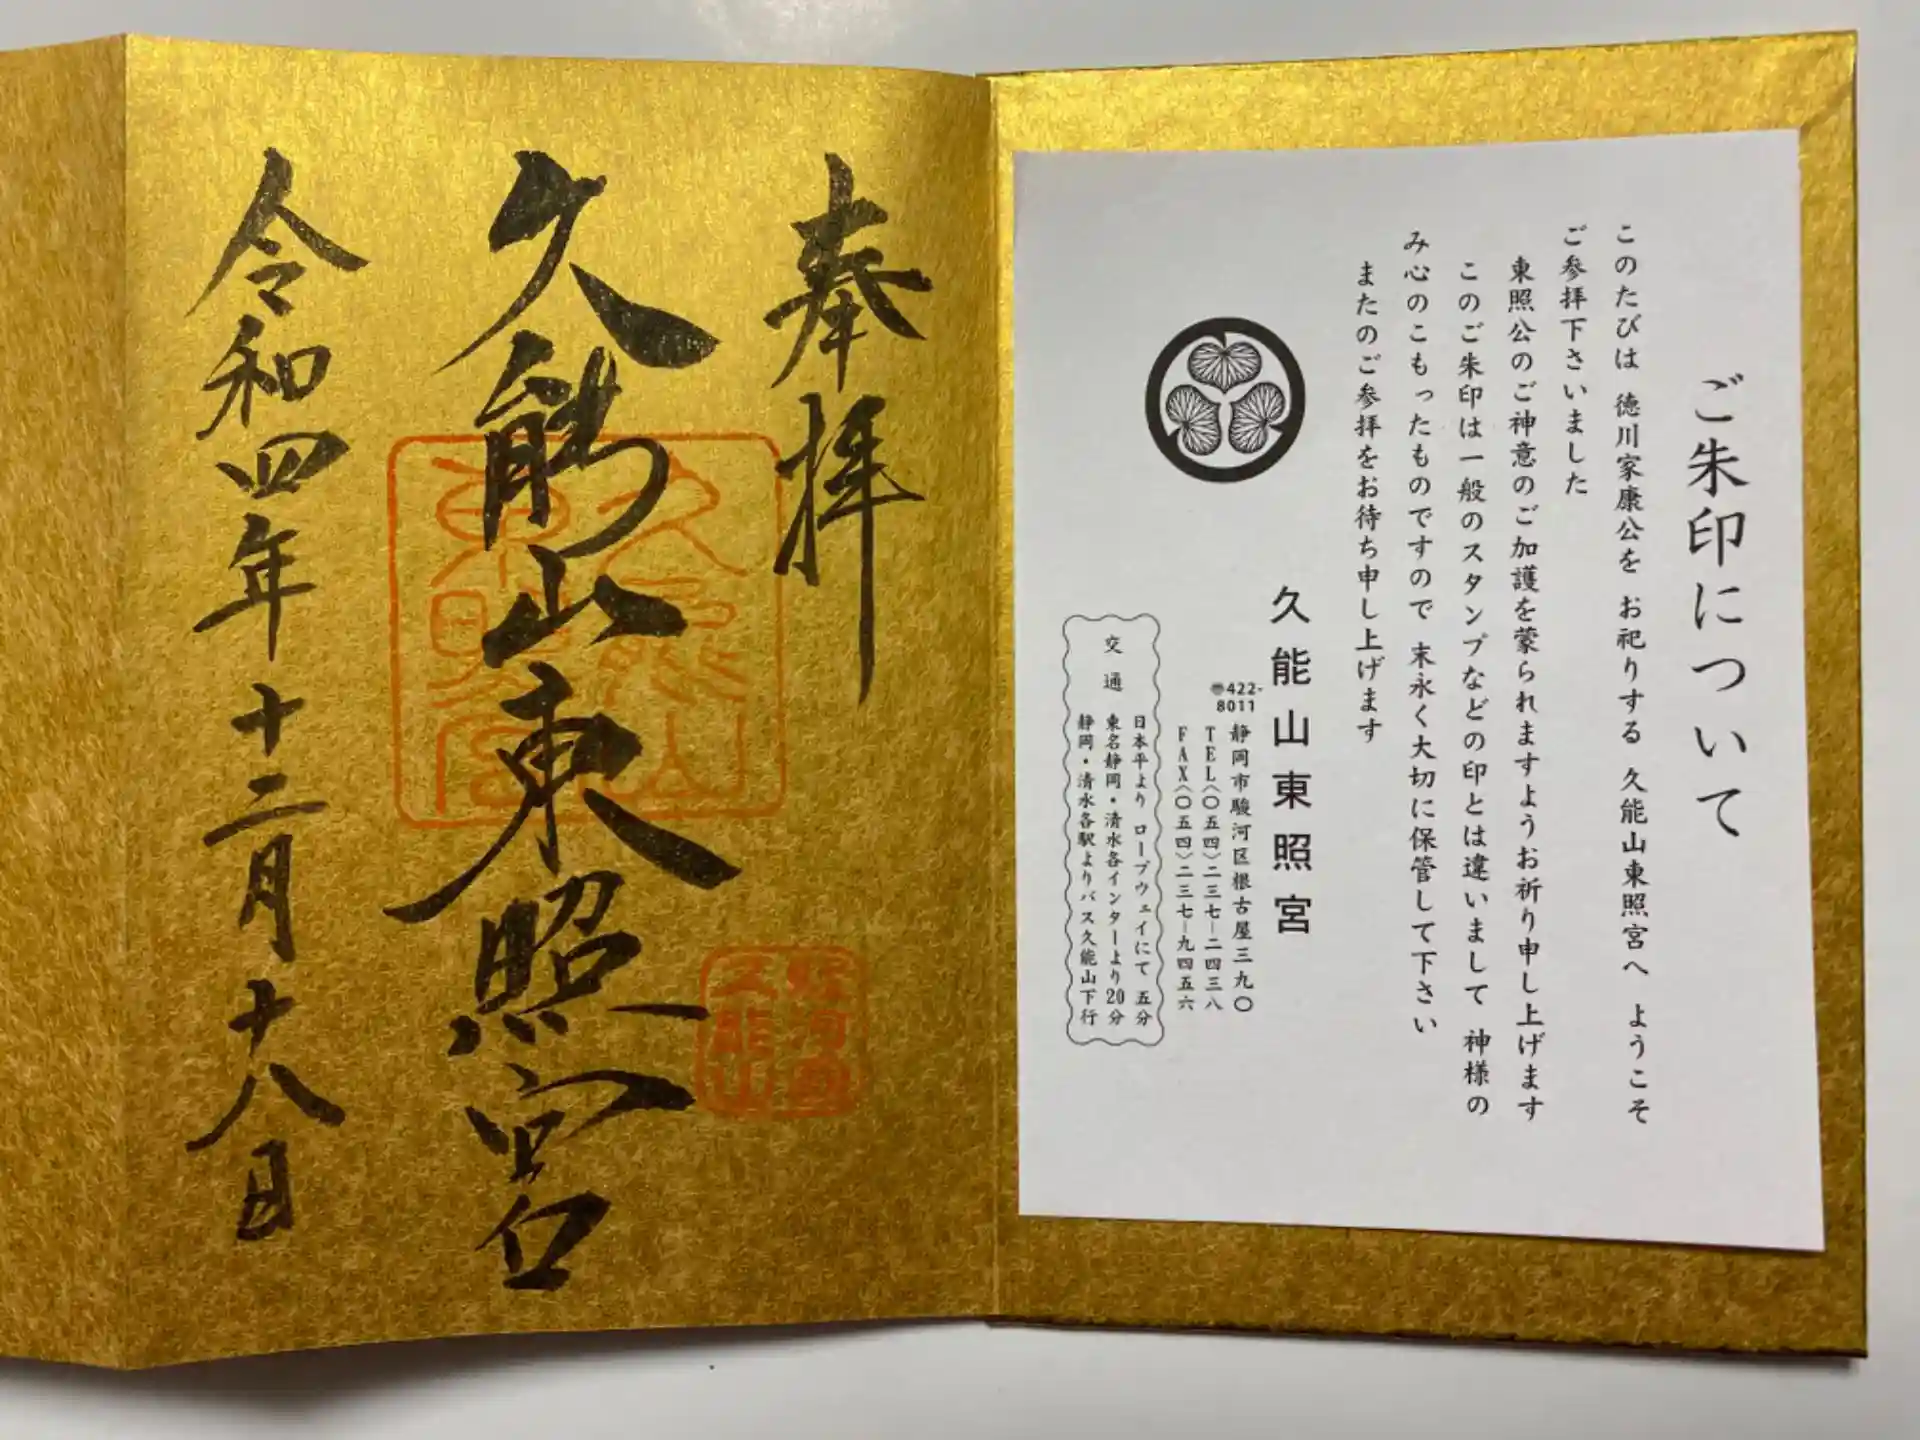 ご朱印について
このたびは 徳川家康公を お祀りする 久能山東照宮へ ようこそ
ご参拝下さいました
東照公のご神意のご加護を蒙られますようお祈り申し上げます
このご朱印は一般のスタンプなどの印とは違いまして 神様の
み心のこもったものですので 末永く大切に保管して下さい
またのご参拝をお待ち申し上げます
久能山東照宮
〠422-8011 静岡市駿河区根古屋三九〇
TEL〈〇五四〉二三七−二四三八
FAX〈〇五四〉二三七−九四五六
交通
日本平より ロープウェイにて 五分
東名静岡・清水各インターより20分
静岡・清水各駅よりバス久能山下行
奉拝
久能山東照宮
令和四年十二月十八日
久能山
東照宮
駿河国
久能山